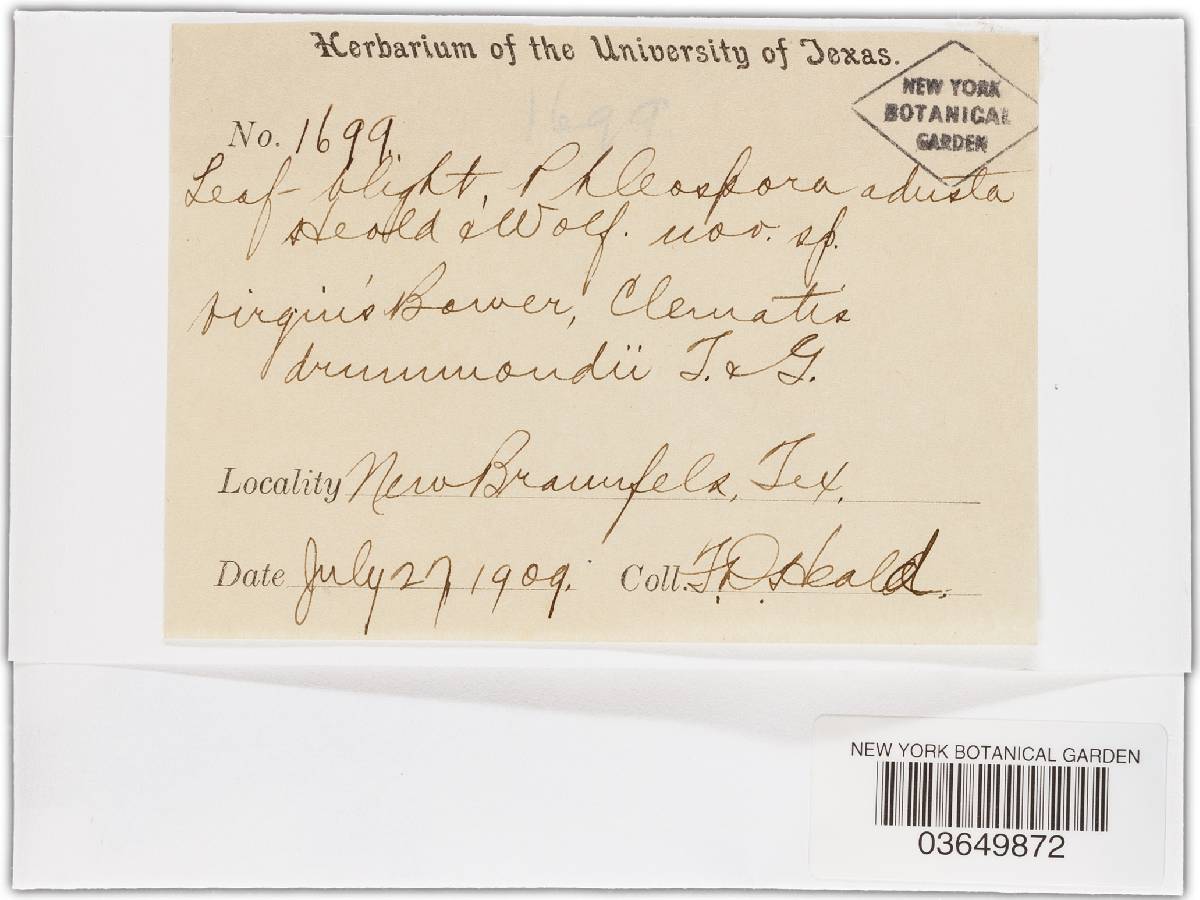 Herbarium of the University of Texas.
NEW YORK
BOTANICAL
GARDEN
1699
No. 1699.
Leaf-blight, Phleospora adusta
Heald & Wolf. nov. sp.
Virgin's Bower, Clematis
drummondii T. & G.
Locality New Braunfels, Tex.
Date July 27, 1909. Coll. F.D. Heald.
NEW YORK BOTANICAL GARDEN
03649872